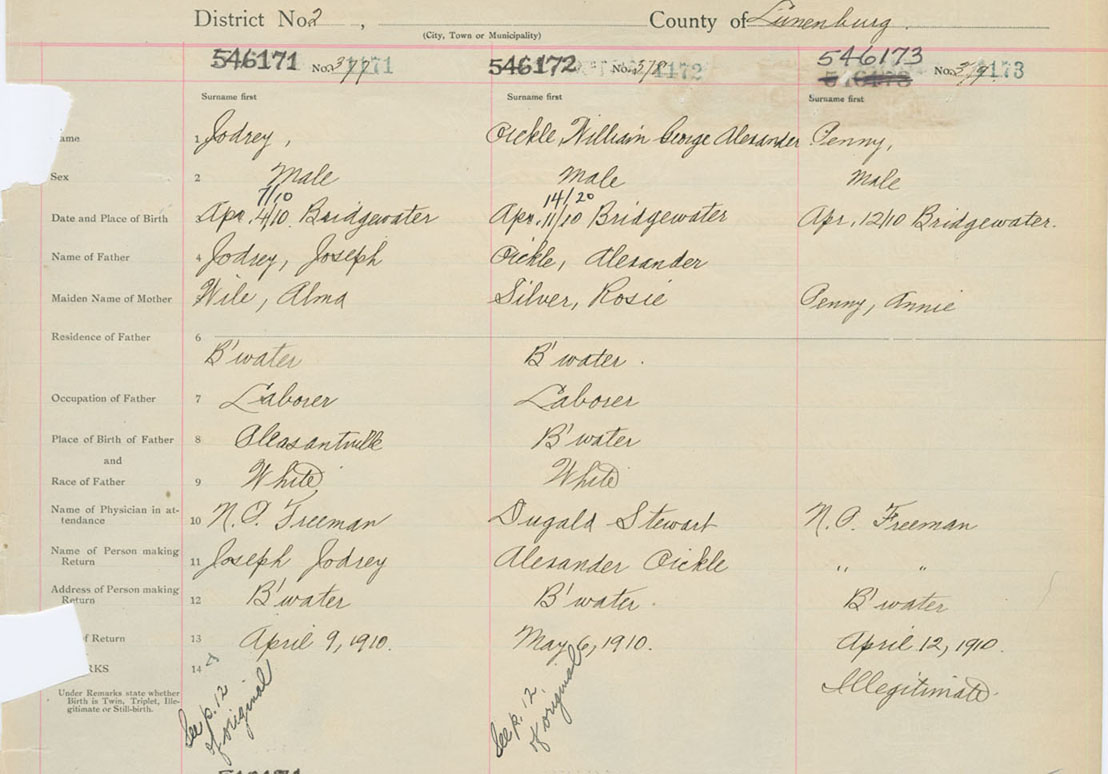 District No. 2 , County of Lunenburg.
(City, Town or Municipality)
546171 No. 377 546172 No. 378 1172 546173 No. 379 1173
Surname first Surname first Surname first
ame 1 Jodrey, Oickle, William George Alexander Penny,
Sex 2 Male Male Male
7/10 14/20
Date and Place of Birth Apr. 4/10 Bridgewater Apr. 11/10 Bridgewater Apr. 12/10 Bridgewater.
Name of Father 4 Jodrey, Joseph Oickle, Alexander
Maiden Name of Mother Wile, Alma Silver, Rosie Penny, Annie
Residence of Father 6
B'water B'water.
Occupation of Father 7 Laborer Laborer
Place of Birth of Father 8 Pleasantville B'water
and
Race of Father 9 White White
Name of Physician in at-
tendance 10 N.P. Freeman Dugald Stewart N.P. Freeman
Name of Person making
Return 11 Joseph Jodrey Alexander Oickle " "
Address of Person making
Return 12 B'water B'water. B'water
f Return 13 April 9, 1910. May 6, 1910. April 12, 1910.
RKS 14 Illegitimate.
Under Remarks state whether
Birth is Twin, Triplet, Ille-
gitimate or Still-birth.
See p. 12 See p. 12
of original of original